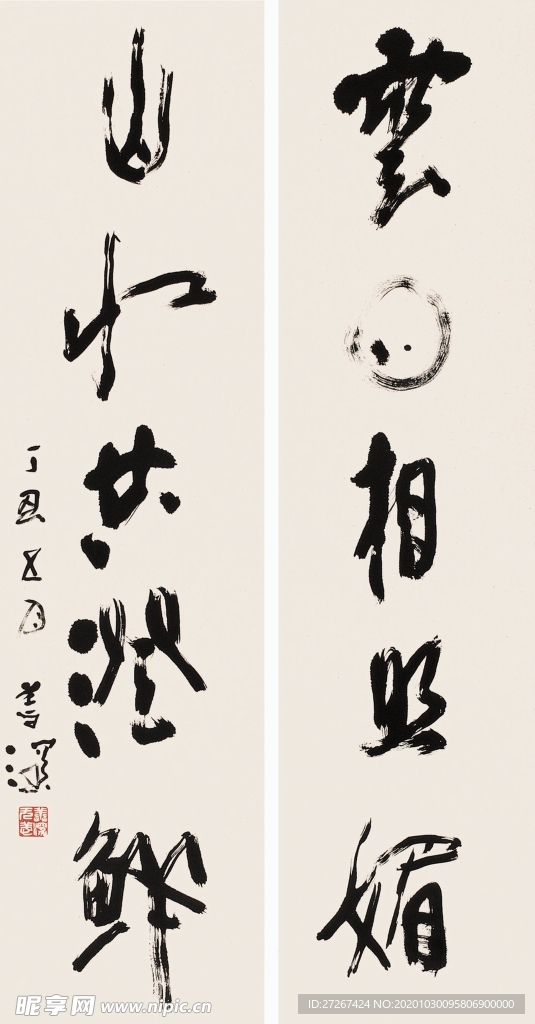 雲日相照媚
山水共澄鮮
丁丑五月 善深
昵享网 www.nipic.cn
ID:27267424 NO:20201030095806900000